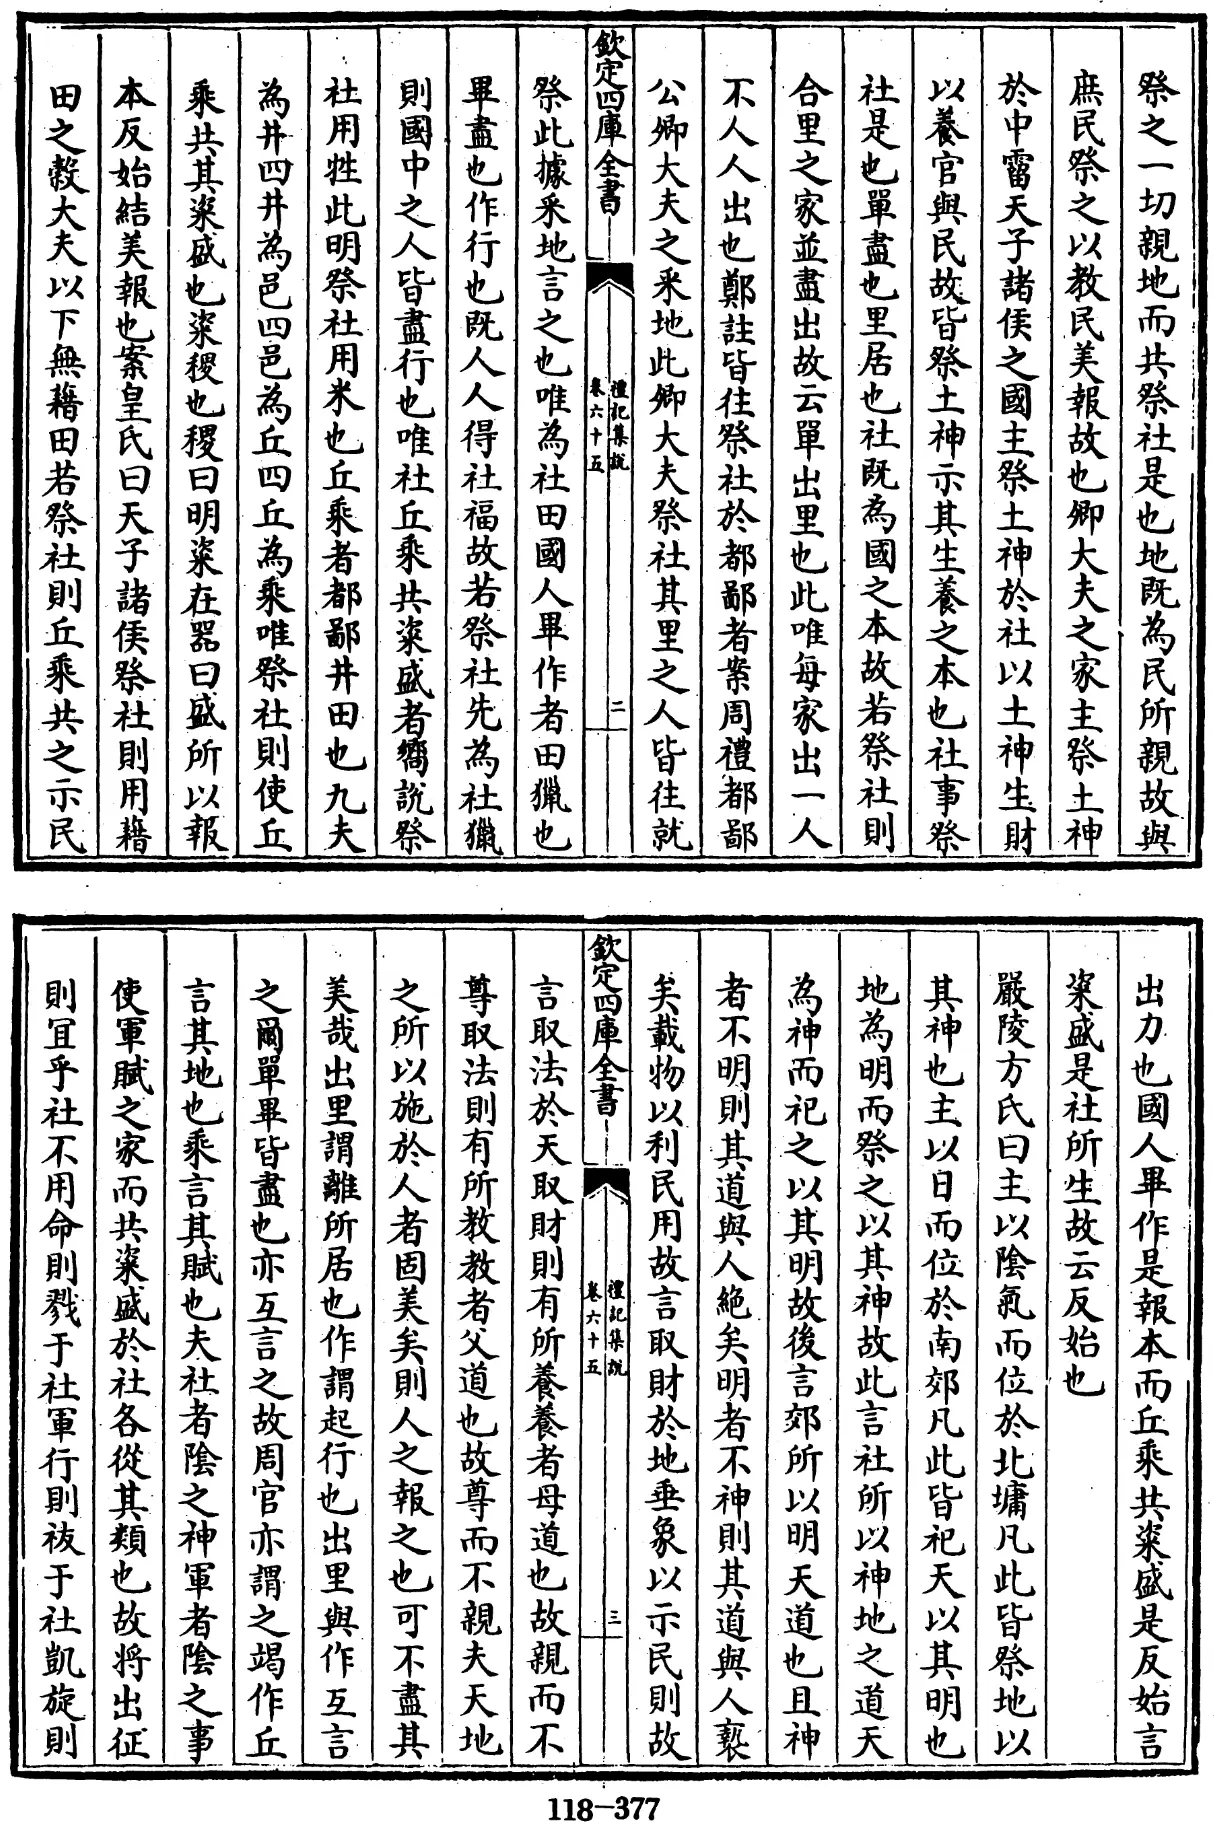 祭之一切親地而共祭社是也地既為民所親故與
庶民祭之以教民美報故也卿大夫之家主祭土神
於中霤天子諸侯之國主祭土神於社以土神生財
以養官與民故皆祭土神示其生養之本也社事祭
社是也單盡也里居也社既為國之本故若祭社則
合里之家並盡出故云單出里也此唯每家出一人
不人人出也鄭註皆往祭社於都鄙者案周禮都鄙
公卿大夫之采地此卿大夫祭社其里之人皆往就
欽定四庫全書
禮記集說
卷六十五
二
祭此據采地言之也唯為社田國人畢作者田獵也
畢盡也作行也既人人得社福故若祭社先為社獵
則國中之人皆盡行也唯社丘乘共粢盛者嚮說祭
社用牲此明祭社用米也丘乘者都鄙井田也九夫
為井四井為邑四邑為丘四丘為乘唯祭社則使丘
乘共其粢盛也粢稷也稷曰明粢在器曰盛所以報
本反始結美報也案皇氏曰天子諸侯祭社則用藉
田之穀大夫以下無藉田若祭社則丘乘共之示民
出力也國人畢作是報本而丘乘共粢盛是反始言
粢盛是社所生故云反始也
嚴陵方氏曰主以陰氣而位於北墉凡此皆祭地以
其神也主以日而位於南郊凡此皆祀天以其明也
地為明而祭之以其神故此言社所以神地之道天
為神而祀之以其明故後言郊所以明天道也且神
者不明則其道與人絶矣明者不神則其道與人褻
矣載物以利民用故言取財於地垂象以示民則故
欽定四庫全書
禮記集說
卷六十五
三
言取法於天取財則有所養養者母道也故親而不
尊取法則有所教教者父道也故尊而不親夫天地
之所以施於人者固美矣則人之報之也可不盡其
美哉出里謂離所居也作謂起行也出里與作互言
之爾單畢皆盡也亦互言之故周官亦謂之竭作丘
言其地也乘言其賦也夫社者陰之神軍者陰之事
使軍賦之家而共粢盛於社各從其類也故將出征
則宜乎社不用命則戮于社軍行則祓于社凱旋則
118-377